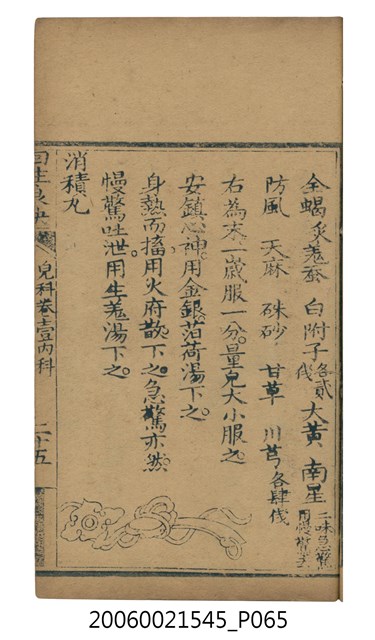 全蝎 炙羌蚕 白附子各貳伐 大黃 南星二味急驚用慢驚去
防風 天麻 硃砂 甘草 川芎各肆伐
右為末一歲服一分量兒大小服之
安鎮心神用金銀泊荷湯下之
身熱而搐用火府散下之急驚亦然
慢驚吐泄用生羌湯下之
消積丸
回生良
兒科卷壹內科
二十五
20060021545_P065